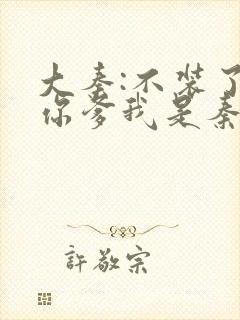 大秦:不装了
你爹我是秦
許敬宗